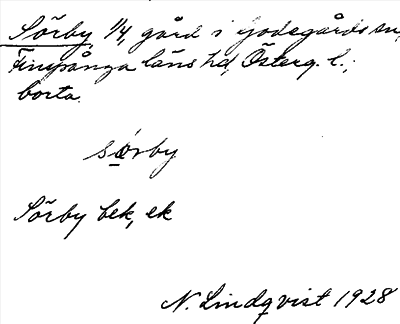 Sörby 1/4, gård i Godegårds sn,
Finspånga läns hd, Österg. l.;
borta.
sǿrby
Sörby bek, ek
N. Lindqvist 1928